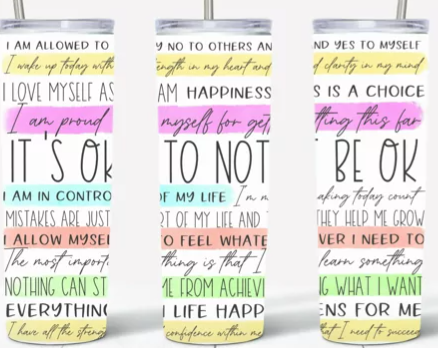 I AM ALLOWED TO Y NO TO OTHERS AN ND YES TO MYSELF
I wake up today with ength in my heart and d clarity in my mind
I LOVE MYSELF AS AM HAPPINESS S IS A CHOICE
I am proud myself for get tting this far
IT'S OK TO NOT BE OK
I AM IN CONTRO OF MY LIFE I'm m aking today count
MISTAKES ARE JUST RT OF MY LIFE AND T THEY HELP ME GROW
I ALLOW MYSEL O FEEL WHATE VER I NEED TO
The most import thing is that I learn something
NOTHING CAN ST ME FROM ACHIEVI NG WHAT I WANT
EVERYTHING N LIFE HAPP ENS FOR ME
I have all the streng confidence within me that I need to succeed